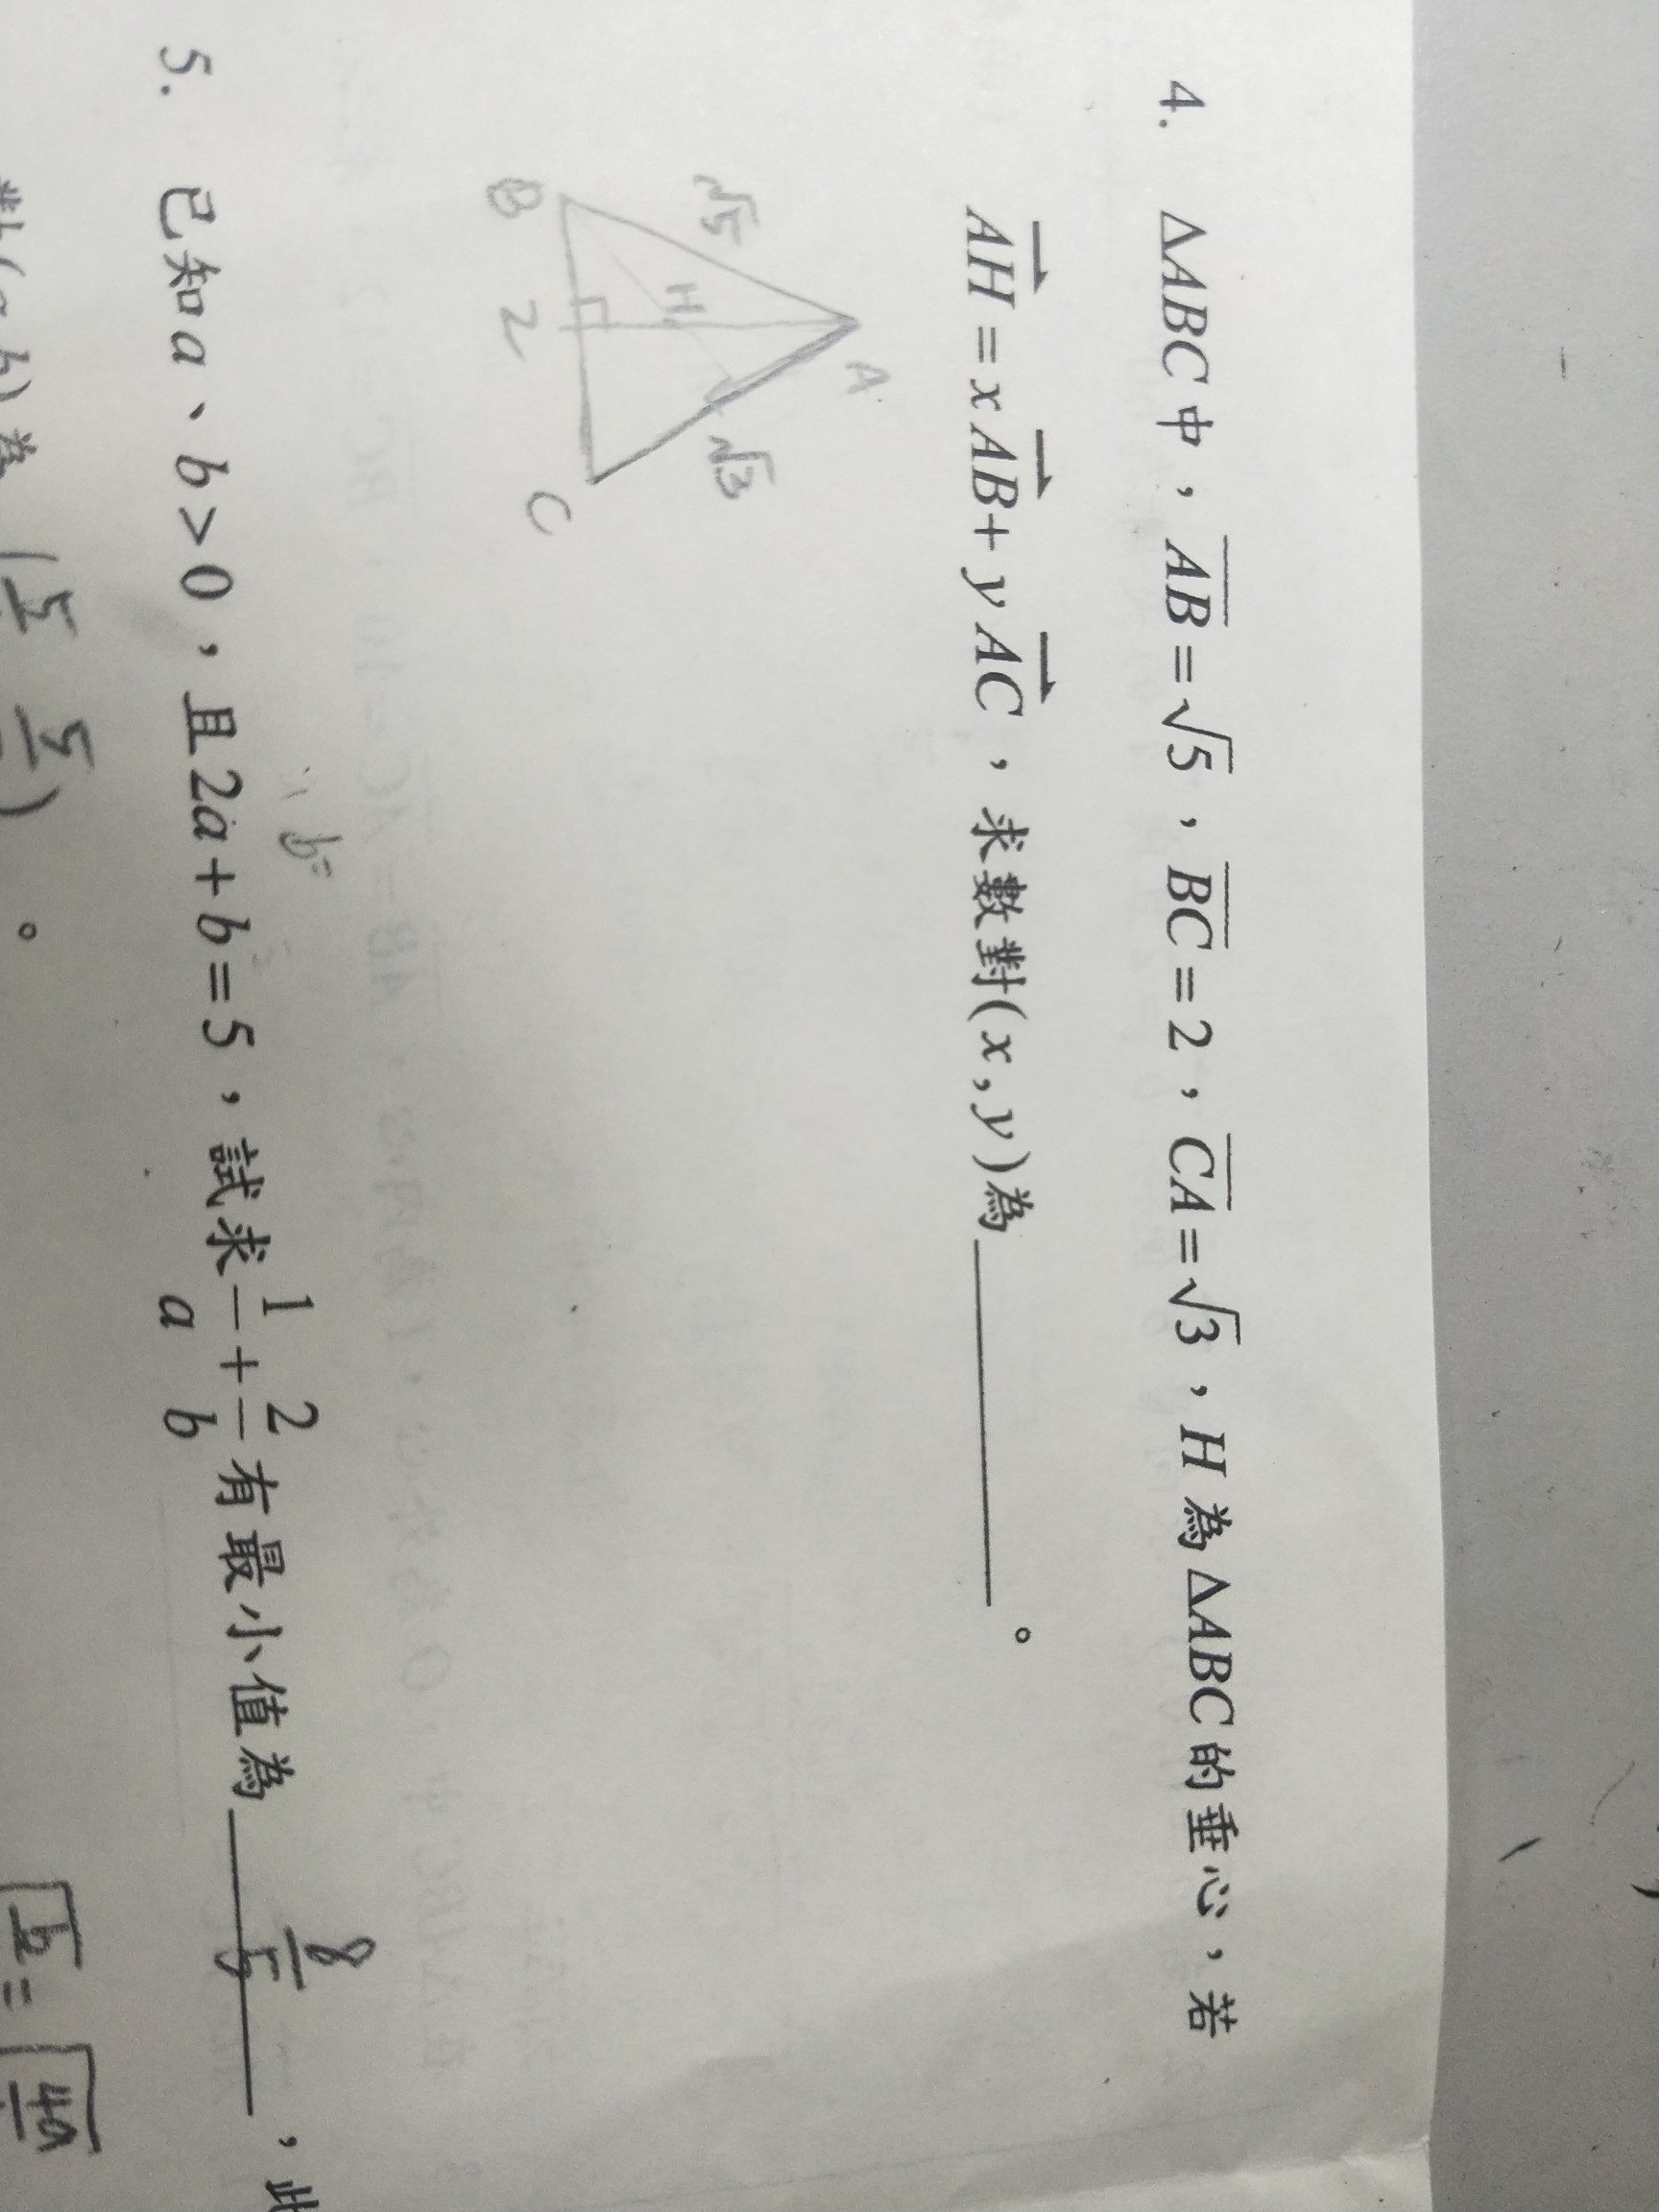 4. △ABC中，AB=√5，BC=2，CA=√3，H為△ABC的垂心，若
AH=xAB+yAC，求數對(x,y)為＿＿＿＿。
A
√5
√3
H
B
2
C
b=
5. 已知a、b>0，且2a+b=5，試求1/a+2/b有最小值為 8/5 ，此
數(a,b)為(5/